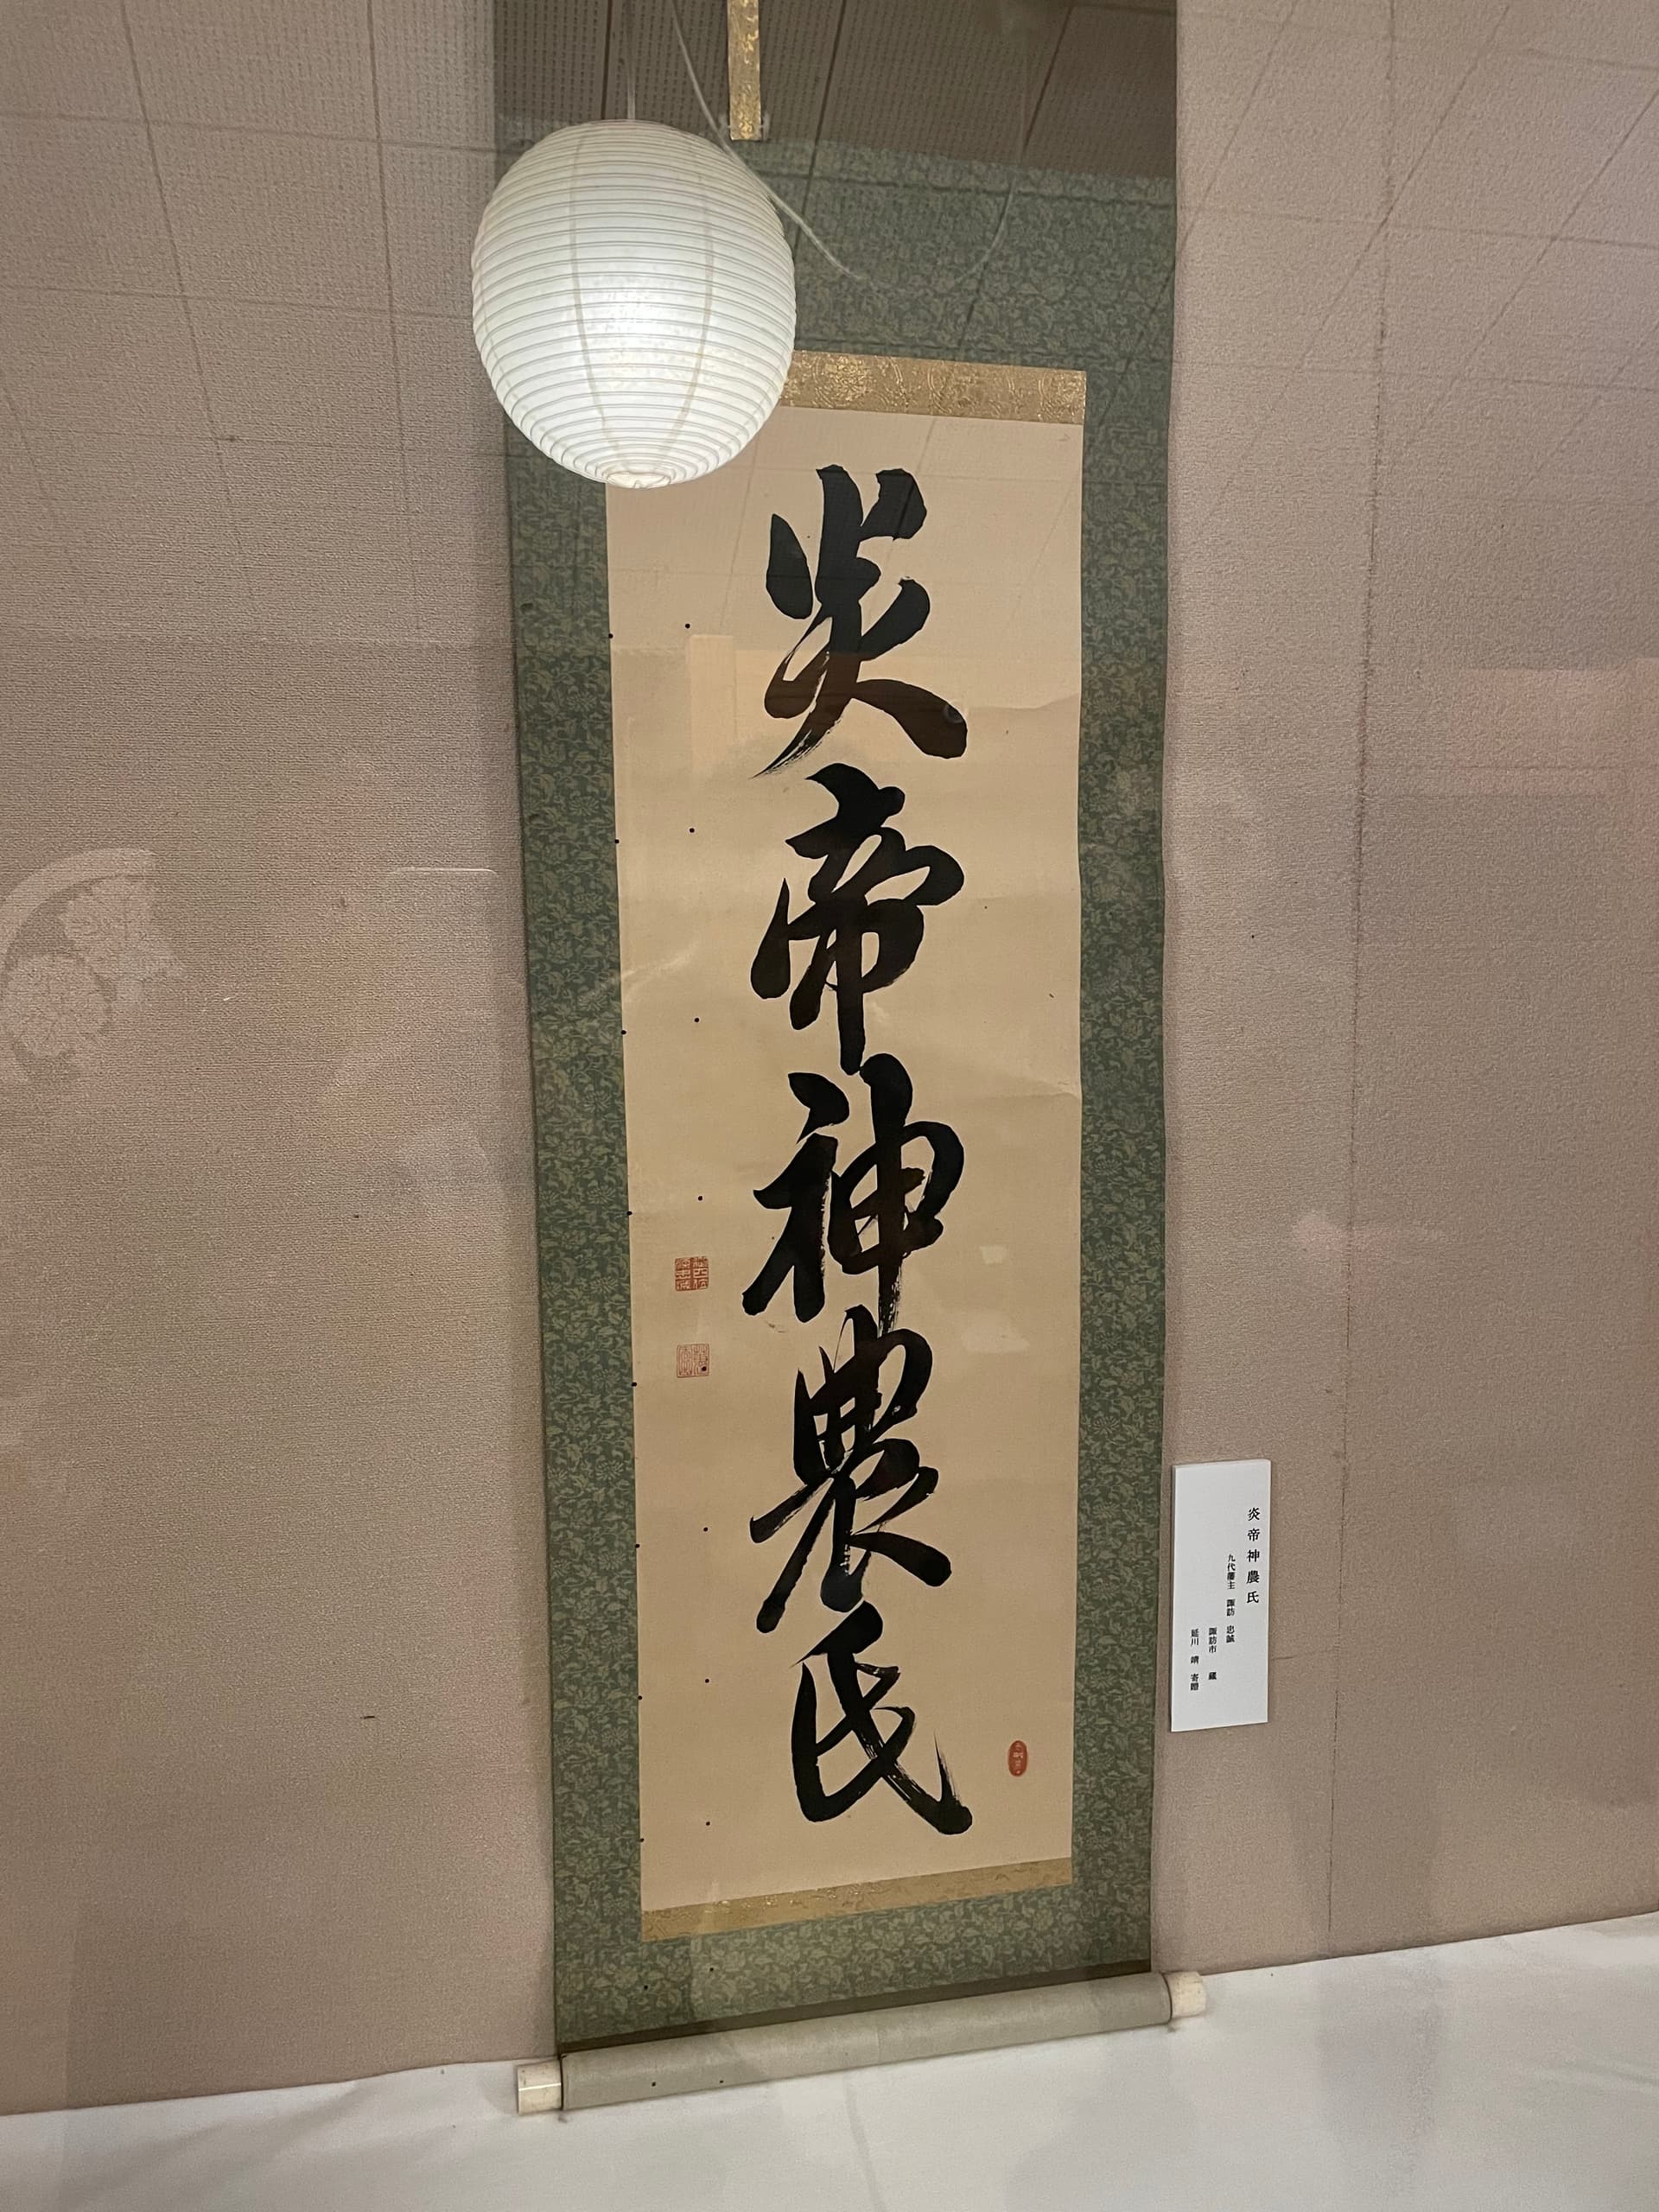 炎帝神農氏
炎帝神農氏
九代藩主 諏訪 忠誠
諏訪市 蔵
延川 靖 寄贈